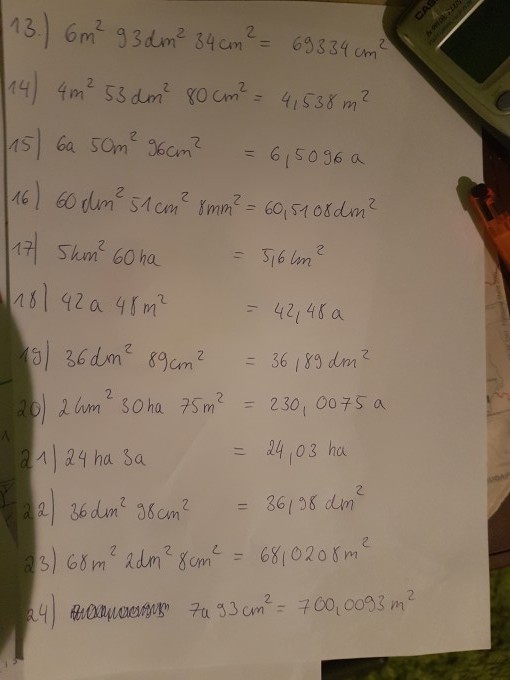 13.) 6m² 93dm² 34cm² = 69334cm²
14) 4m² 53dm² 80cm² = 4,538m²
15) 6a 50m² 96cm² = 6,5096a
16) 60dm² 51cm² 8mm² = 60,5108dm²
17) 5km² 60ha = 5,6km²
18) 42a 48m² = 42,48a
19) 36dm² 89cm² = 36,89dm²
20) 2km² 30ha 75m² = 230,0075a
21) 24ha 3a = 24,03 ha
22) 36dm² 98cm² = 36,98 dm²
23) 68m² 2dm² 8cm² = 68,0208m²
24) 7a 93cm² = 700,0093m²